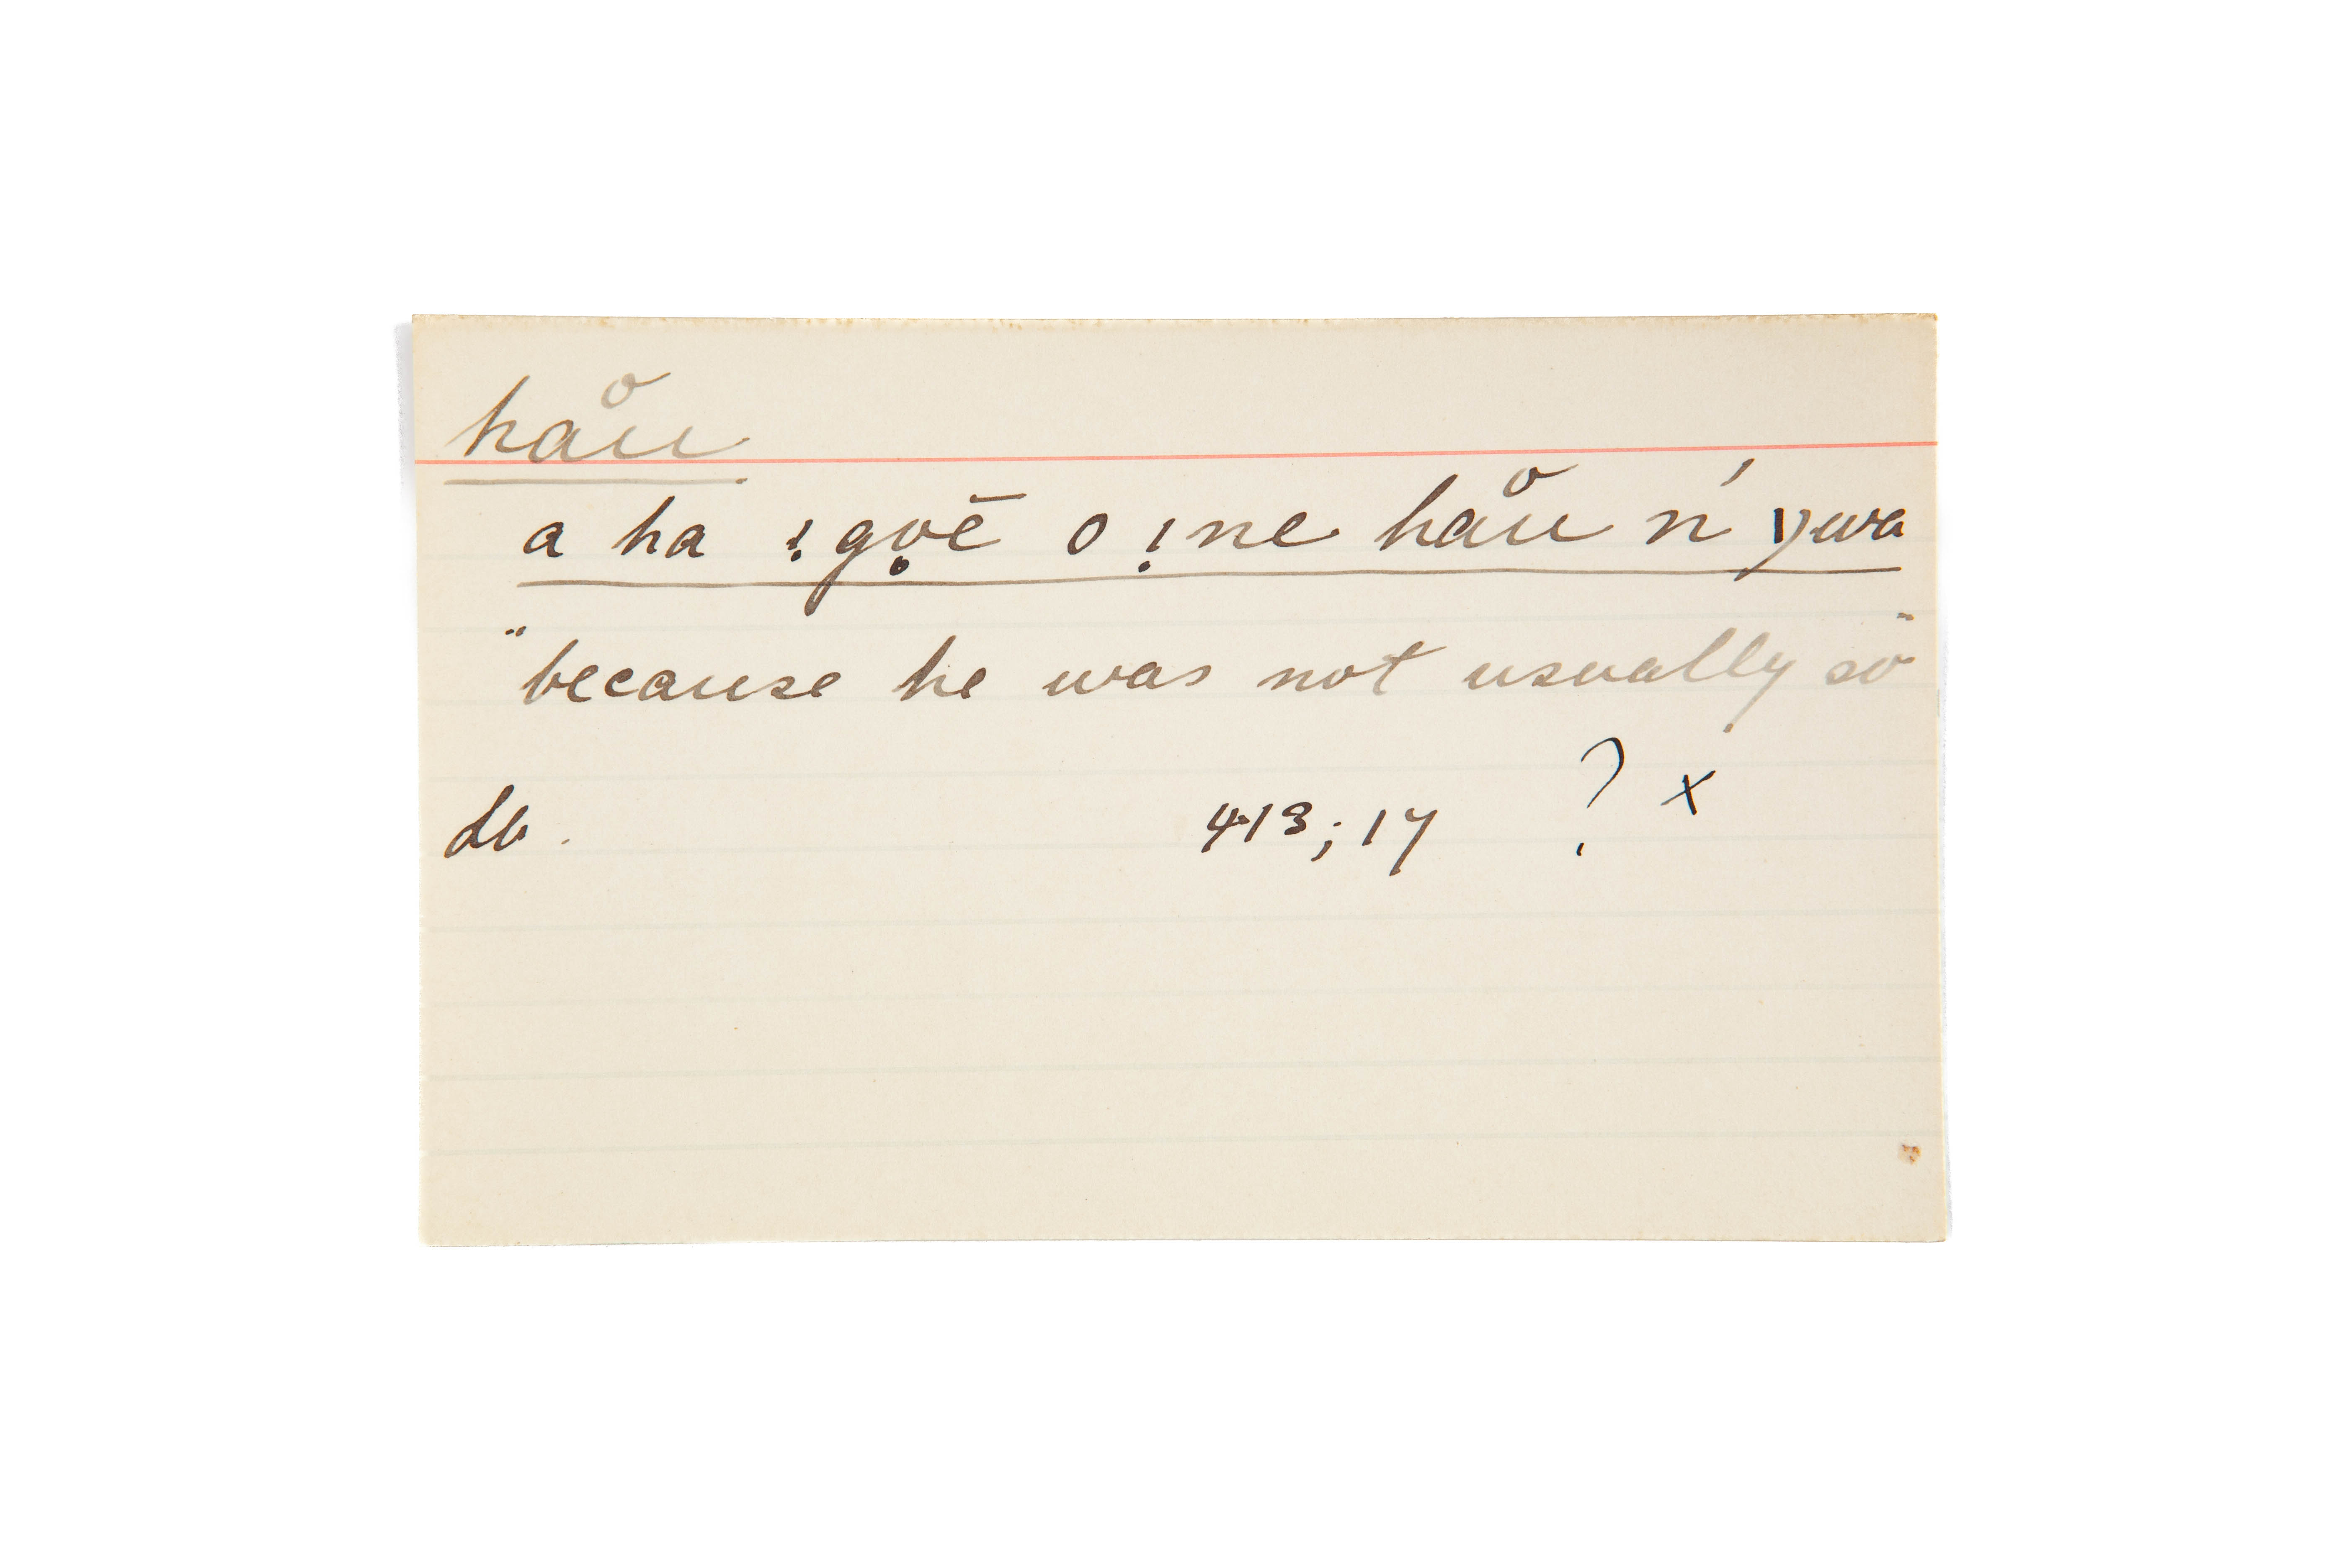 haů
a ha ı̣gọē o ı̣ne haů n' ywa
"because he was not usually so"
413; 17 ? x